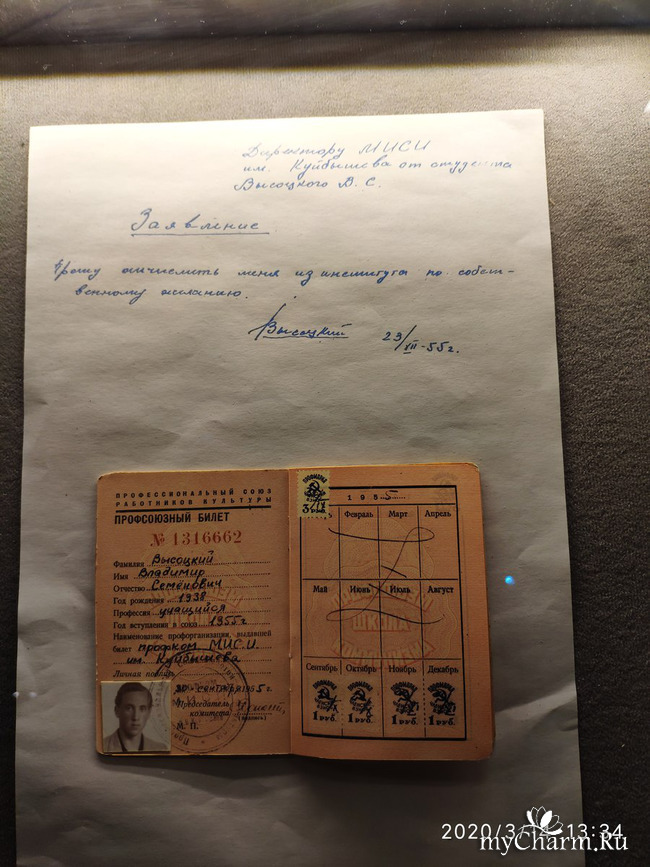 Директору МИСИ
им. Куйбышева от студента
Высоцкого В. С.
Заявление
Прошу отчислить меня из института по собст-
венному желанию.
Высоцкий 23/XII-55г.
ПРОФЕССИОНАЛЬНЫЙ СОЮЗ
РАБОТНИКОВ КУЛЬТУРЫ
ПРОФСОЮЗНЫЙ БИЛЕТ
№ 1316662
Фамилия Высоцкий
Имя Владимир
Отчество Семёнович
Год рождения 1938
Профессия учащийся
Год вступления в союз 1955г
Наименование профорганизации, выдавшей
билет профком МИСИ
им. Куйбышева
Личная подпись
30 сентября 1955 г.
Председатель
комитета
(подпись)
М. П.
1955
Февраль Март Апрель
Май Июнь Июль Август
Сентябрь Октябрь Ноябрь Декабрь
1 РУБ. 1 РУБ. 1 РУБ. 1 РУБ.
13:34
myCharm.Ru